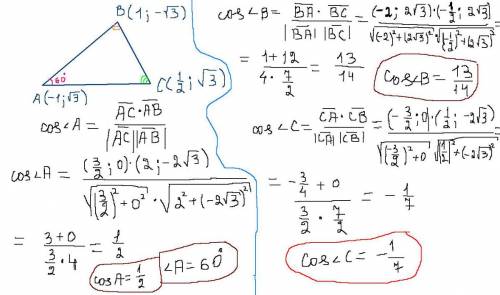 B(1;-√3)
60°
A(-1;√3)
C(1/2;√3)
cos∠A = (AC·AB)/(|AC||AB|)
cos∠A = ((3/2;0)·(2;-2√3))/(√((3/2)²+0²)·√(2²+(-2√3)²))
= (3+0)/(3/2·4) = 1/2
cosA = 1/2
∠A = 60°
cos∠B = (BA·BC)/(|BA||BC|) = ((-2;2√3)·(-1/2;2√3))/(√((-2)²+(2√3)²)·√((-1/2)²+(2√3)²))
= (1+12)/(4·7/2) = 13/14
cos∠B = 13/14
cos∠C = (CA·CB)/(|CA||CB|) = ((-3/2;0)·(1/2;-2√3))/(√((-3/2)²+0)·√((1/2)²+(-2√3)²))
= (-3/4+0)/(3/2·7/2) = -1/7
cos∠C = -1/7